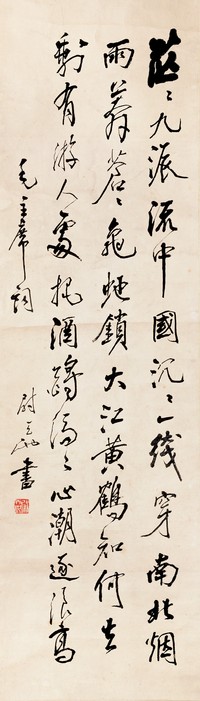 茫々九派流中國沉々一线穿南北烟
雨莽蒼々龜蛇鎖大江黄鶴知何去
剩有游人處把酒酹滔々心潮逐浪高
毛主席詞
尉天池書